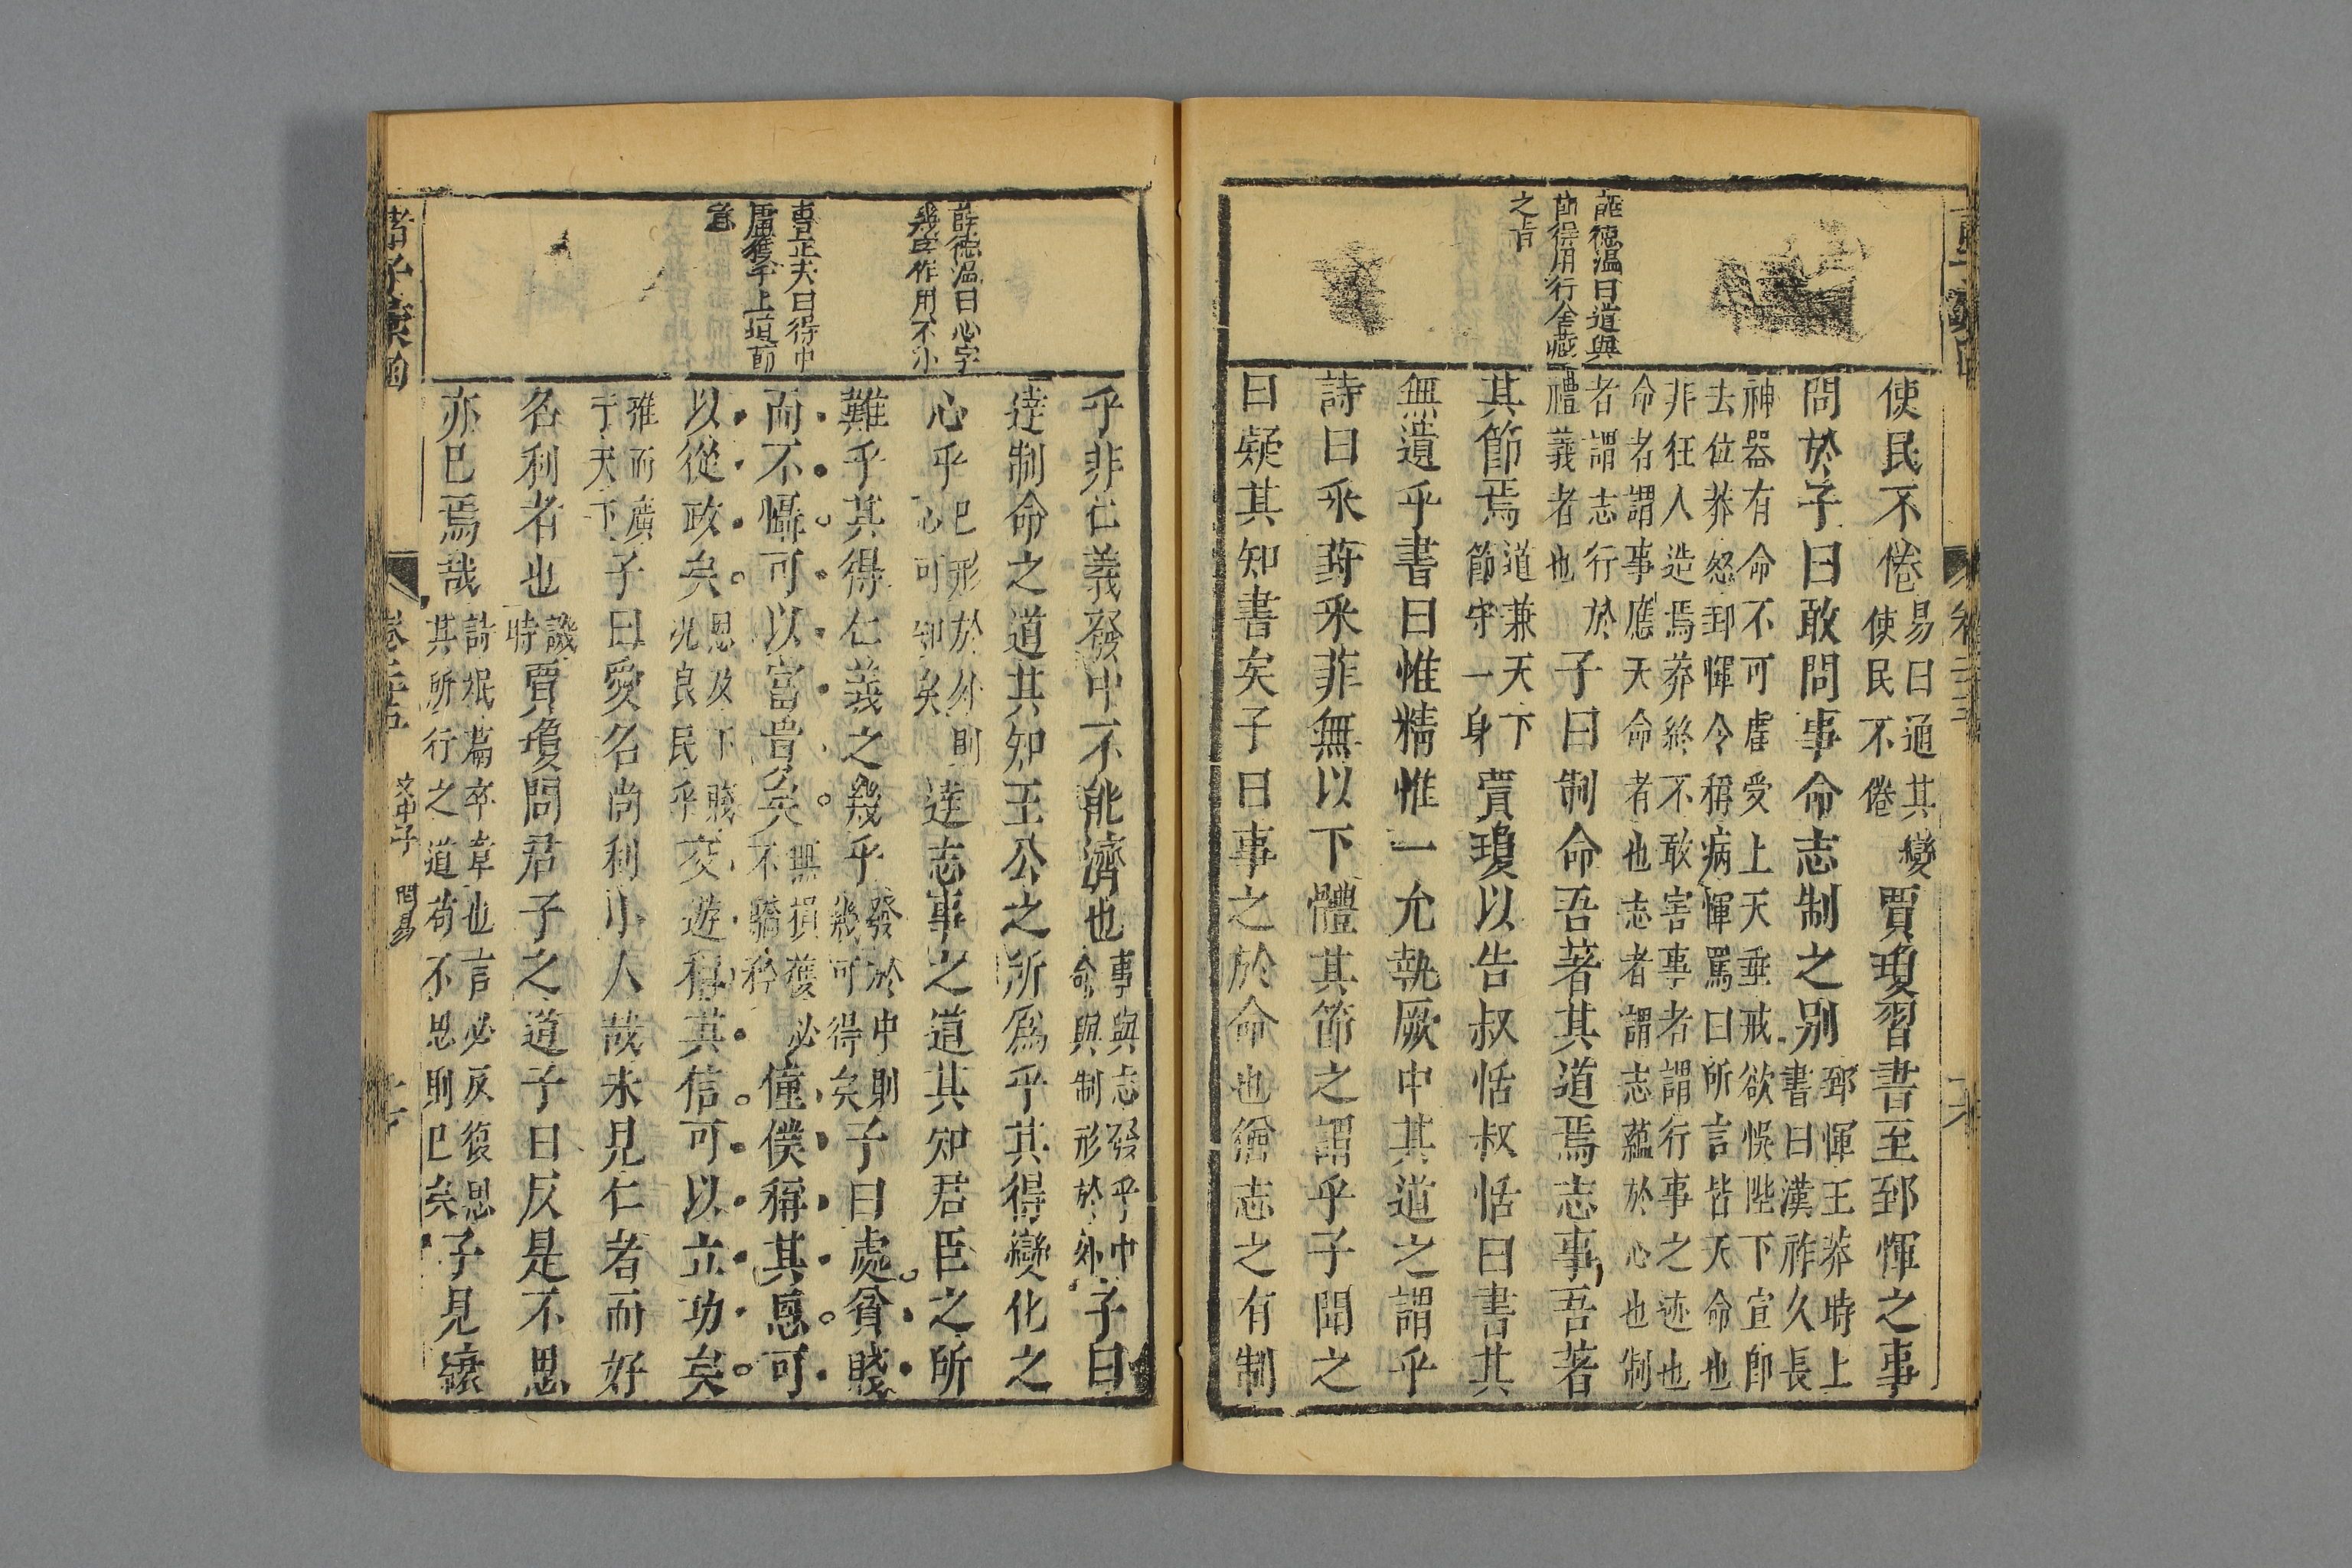 薛德溫曰道與
節得用行舍藏
之旨
使民不倦易曰通其變
使民不倦賈瓊習書至郅惲之事
問於子曰敢問事命志制之别郅惲王莽時上
書曰漢祚久長
神器有命不可虛受上天垂戒欲悞陛下宜即
去位莽怒郅惲令稱病惲罵曰所言皆天命也
非狂人造焉莽終不敢害事者謂行事之迹也
命者謂事應天命者也志者謂志蘊於心也制
者謂志行於
禮義者也子曰制命吾著其道焉志事吾著
其節焉道兼天下
節守一身賈瓊以告叔恬叔恬曰書其
無遺乎書曰惟精惟一允執厥中其道之謂乎
詩曰采葑采菲無以下體其節之謂乎子聞之
曰凝其知書矣子曰事之於命也猶志之有制
薛德溫曰心字
幾乎作用不小
曹正夫曰得中
乎非仁義發中不能濟也事與志發乎中
命與制形於外子曰
達制命之道其知王公之所爲乎其得變化之
心乎已形於外則
心可知矣達志事之道其知君臣之所
難乎其得仁義之幾乎發於中則
幾可得矣子曰處貧賤
而不懾可以富貴矣無損獲必
不驕矜僮僕稱其恩可
以從政矣恩及下賤
況良民乎交遊稱其信可以立功矣
雅而廣
于天下子曰愛名尚利小人哉未見仁者而好
名利者也譏
時賈瓊問君子之道子曰反是不思
亦已焉哉詩氓篇卒章也言必反復思
其所行之道苟不思則已矣子見縗
諸子彙函
卷二十五
文中子
問易